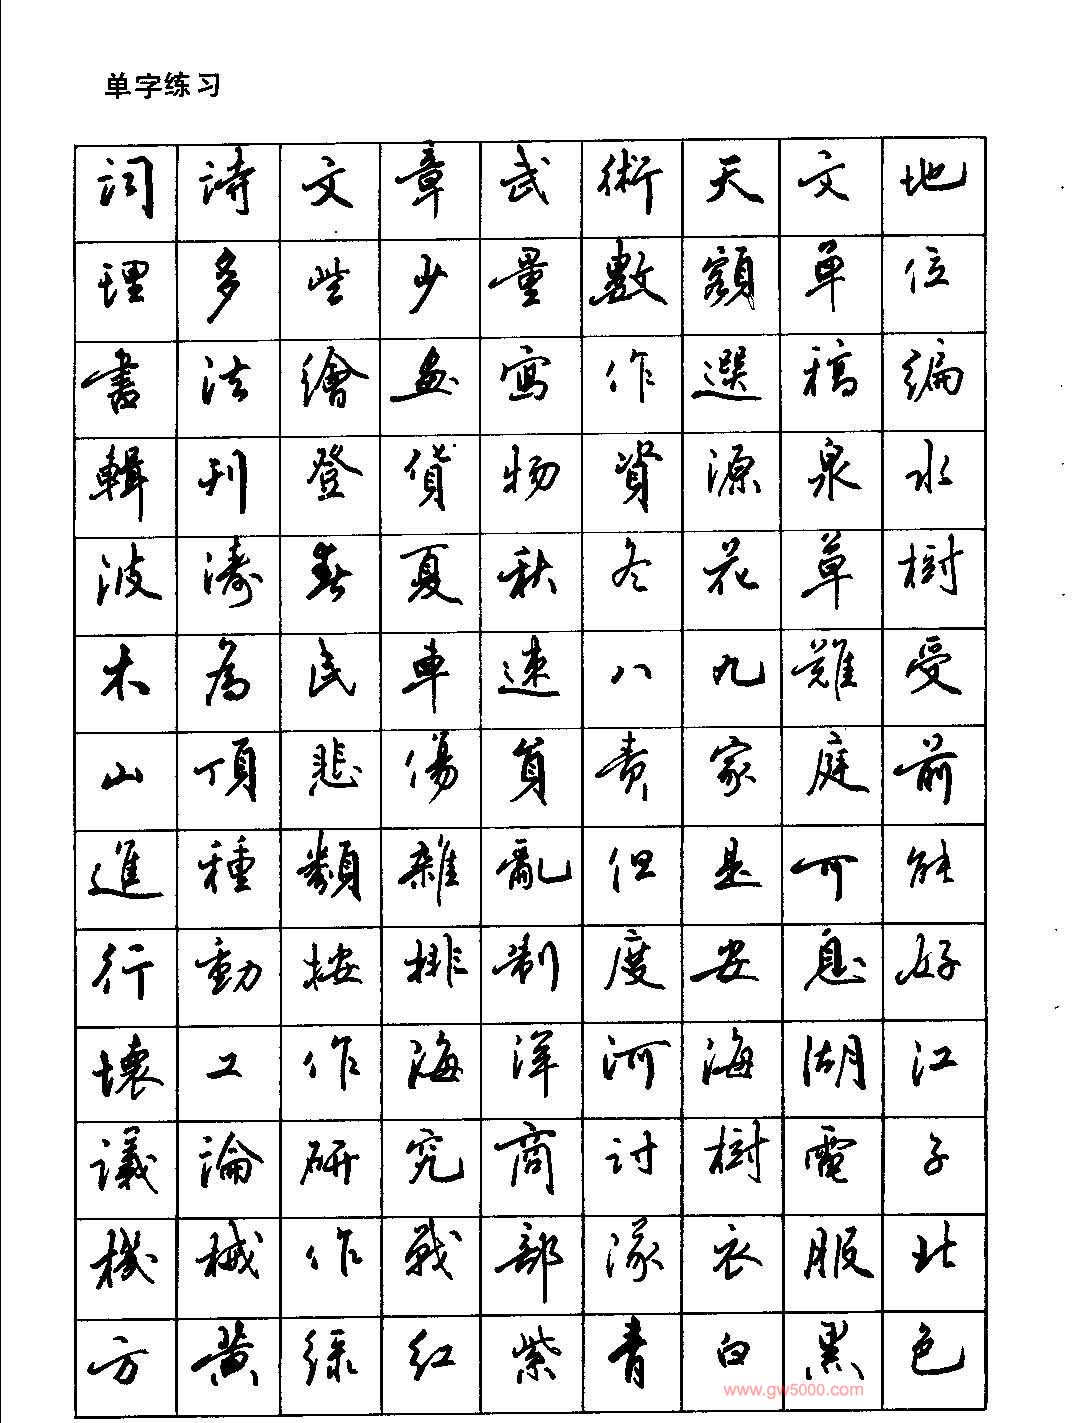 单字练习
詞 詩 文 章 武 術 天 文 地
理 多 些 少 量 數 額 單 位
書 法 繪 画 寫 作 選 稿 编
輯 刊 登 貨 物 資 源 泉 水
波 濤 春 夏 秋 冬 花 草 樹
木 為 民 車 速 八 九 難 受
山 頂 悲 傷 負 责 家 庭 前
進 種 類 雜 亂 但 是 可 能
行 動 按 排 制 度 安 息 好
壞 工 作 海 洋 河 海 湖 江
議 論 研 究 商 討 樹 電 子
機 械 作 戰 部 隊 衣 服 北
方 黄 绿 红 紫 青 白 黑 色
www.gw5000.com